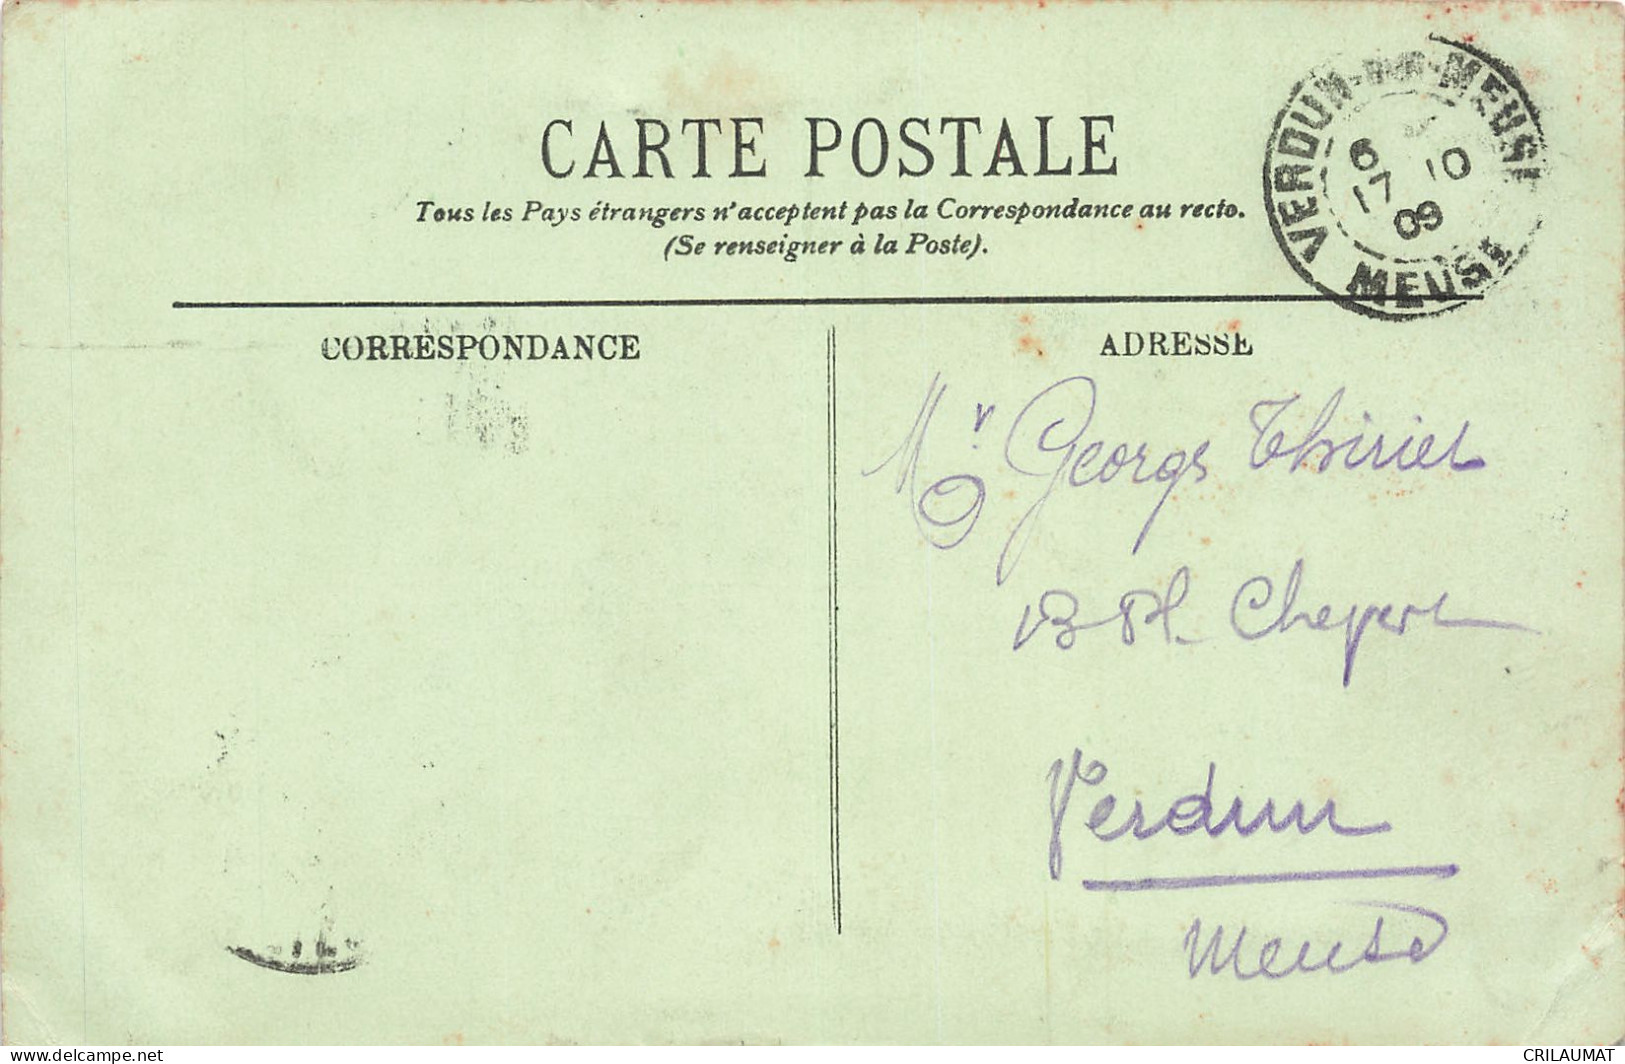 CARTE POSTALE
Tous les Pays étrangers n'acceptent pas la Correspondance au recto.
(Se renseigner à la Poste).
VERDUN-SUR-MEUSE
6 10
17
09
MEUSE
CORRESPONDANCE
ADRESSE
Mr Georgs Thiriet
13 Pl. Chevert
Verdun
Meuse
delcampe.net
CRILAUMAT